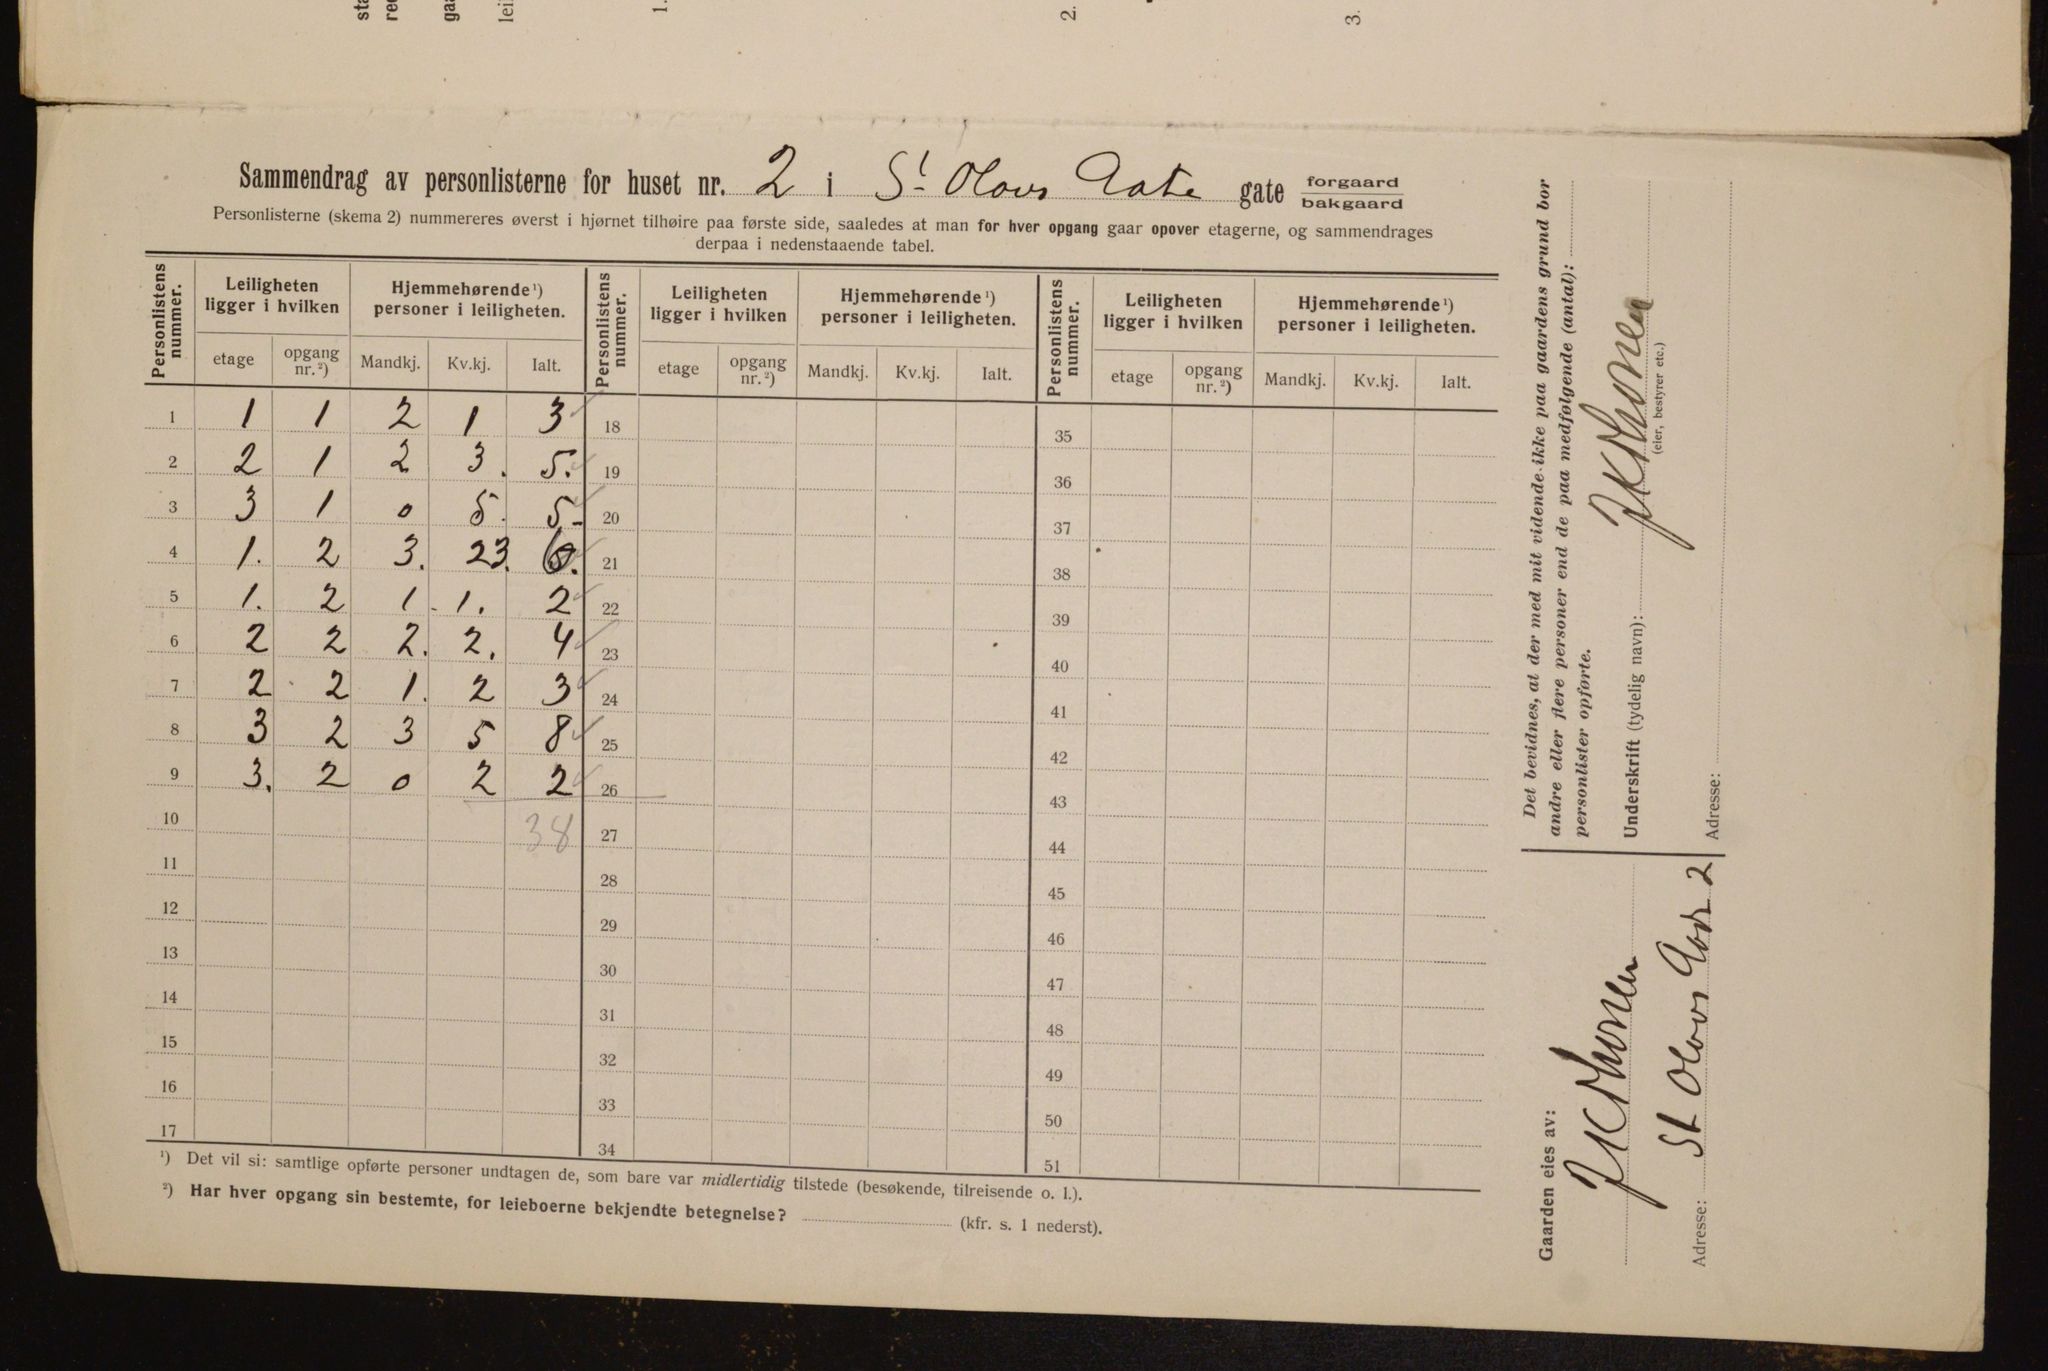 1.
2.
3.
Sammendrag av personlisterne for huset nr. 2 i St. Olavs Gate gate forgaard bakgaard
Personlisterne (skema 2) nummereres øverst i hjørnet tilhøire paa første side, saaledes at man for hver opgang gaar opover etagerne, og sammendrages
derpaa i nedenstaaende tabel.
Personlistens nummer. Leiligheten ligger i hvilken Hjemmehørende ¹) personer i leiligheten. Personlistens nummer. Leiligheten ligger i hvilken Hjemmehørende ¹) personer i leiligheten. Personlistens nummer. Leiligheten ligger i hvilken Hjemmehørende ¹) personer i leiligheten.
etage opgang nr. ²) Mandkj. Kv.kj. Ialt. etage opgang nr. ²) Mandkj. Kv.kj. Ialt. etage opgang nr. ²) Mandkj. Kv.kj. Ialt.
1 1 1 2 1 3 18 35
2 2 1 2 3. 5. 19 36
3 3 1 0 5. 5- 20 37
4 1. 2 3. 23. 6. 21 38
5 1. 2 1. 1. 2 22 39
6 2 2 2. 2. 4 23 40
7 2 2 1. 2 3 24 41
8 3 2 3 5 8 25 42
9 3. 2 0 2 2 26 43
10 38 27 44
11 28 45
12 29 46
13 30 47
14 31 48
15 32 49
16 33 50
17 34 51
¹) Det vil si: samtlige opførte personer undtagen de, som bare var midlertidig tilstede (besøkende, tilreisende o. l.).
²) Har hver opgang sin bestemte, for leieboerne bekjendte betegnelse? (kfr. s. 1 nederst).
Det bevidnes, at der med mit vidende ikke paa gaardens grund bor
andre eller flere personer end de paa medfølgende (antal):
personlister opførte.
Underskrift (tydelig navn):
(eier, bestyrer etc.)
Adresse:
Gaarden eies av:
Adresse: St Olavs Gade 2